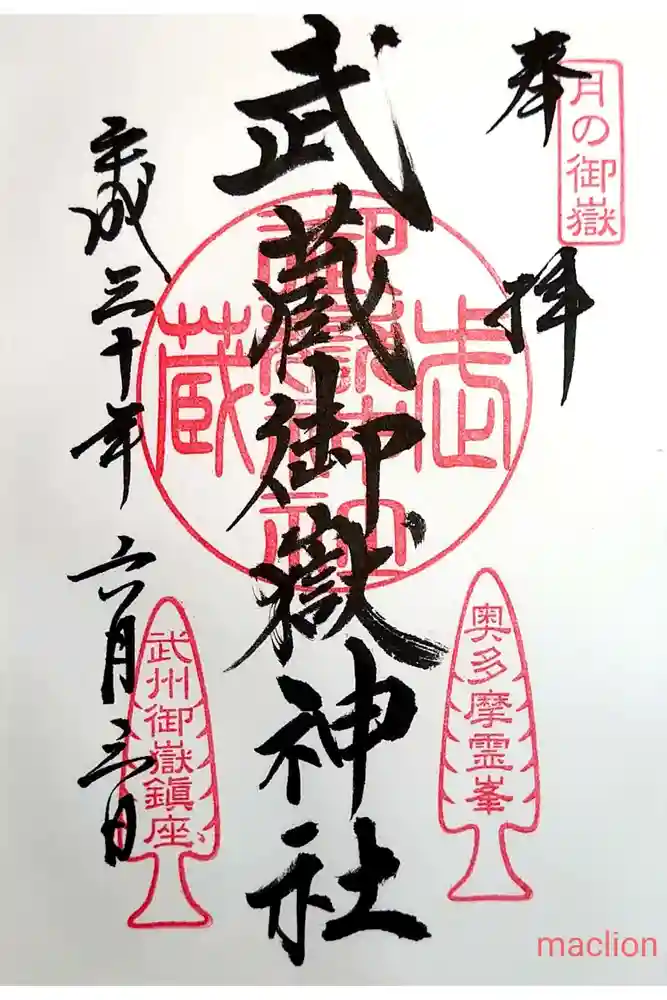 月の御嶽
奉拝
武蔵御嶽神社
武蔵
御嶽神社
平成三十年六月三日
奥多摩霊峯
武州御嶽鎮座
maclion